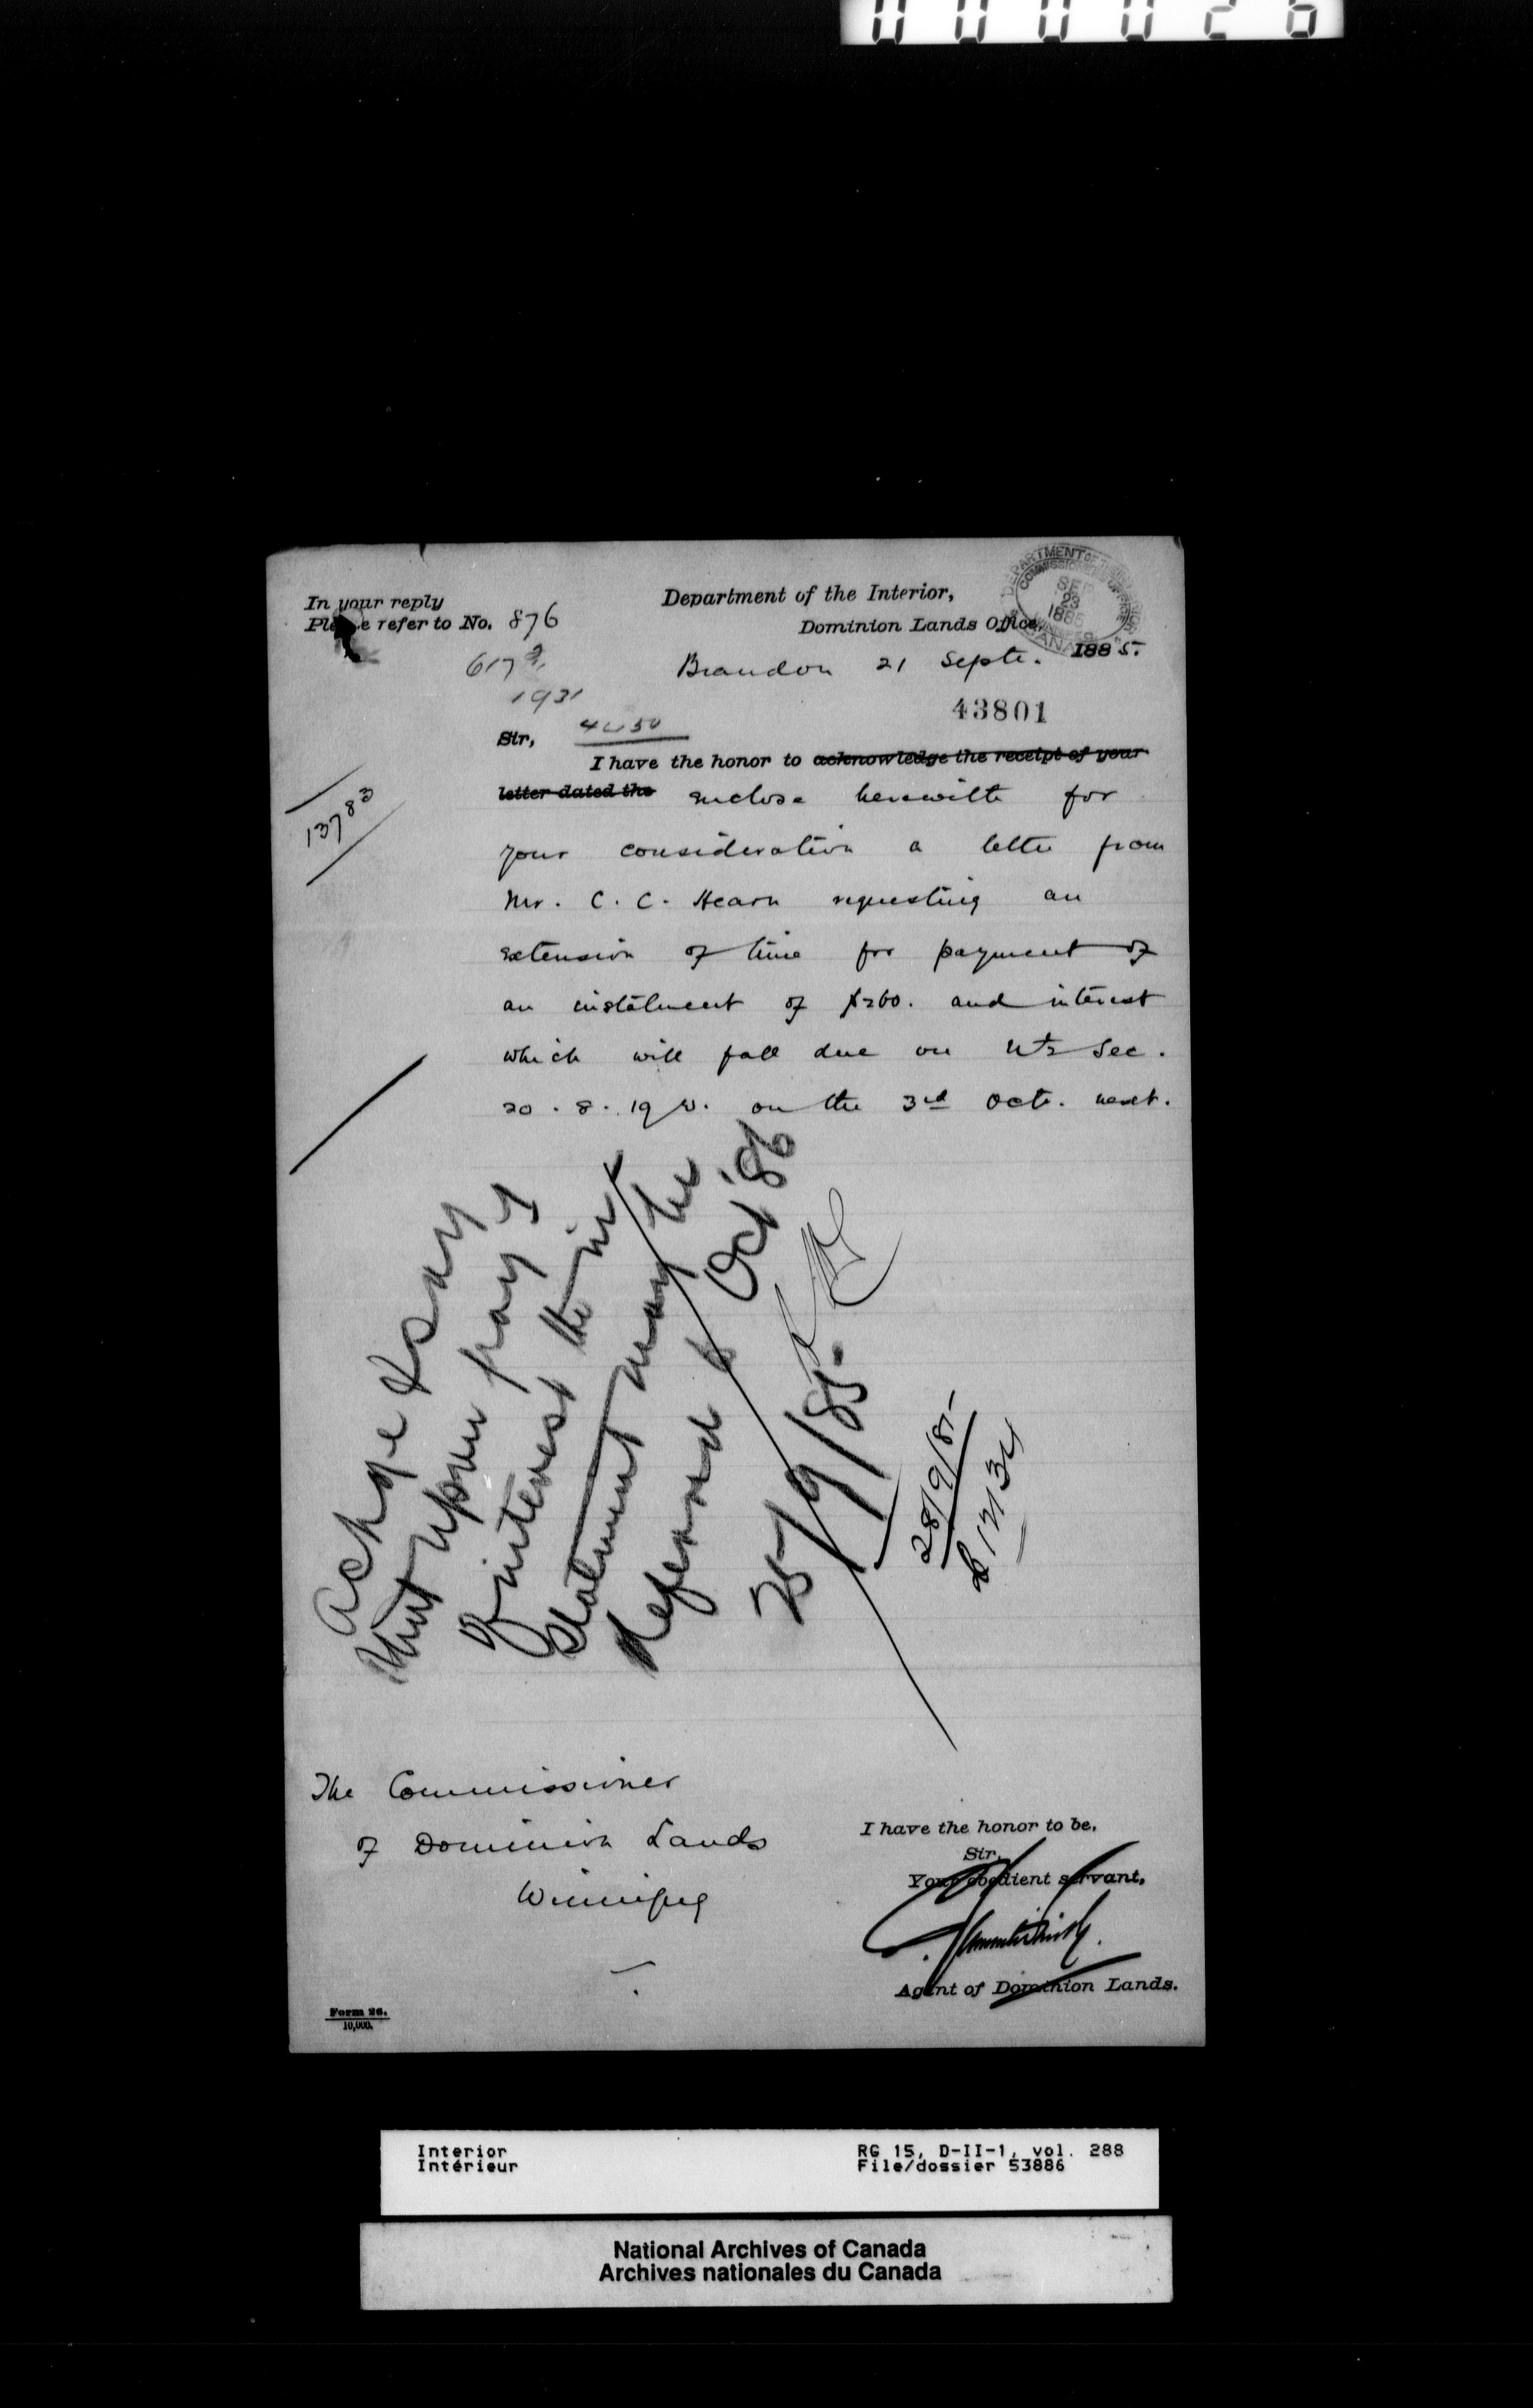 000026
In your reply
Please refer to No. 876
Department of the Interior,
Dominion Lands Office,
DEPARTMENT OF THE INTERIOR
SEP
23
1885
WINNIPEG
CANADA
Brandon 21 Septr. 1885.
617
1931
43801
Sir,
I have the honor to acknowledge the receipt of your
letter dated the enclose herewith for
your consideration a letter from
Mr. C. C. Hearn requesting an
extension of time for payment of
an instalment of $260. and interest
which will fall due on Sec.
20 . 8 . 19 W. on the 3rd Octr. next.
13783
Ackge & say
that upon payt
of interest the in
stalment may be
deferred to Oct '86
25/9/85.
28/9/85
The Commissioner
of Dominion Lands
Winnipeg
I have the honor to be,
Sir,
Your obedient servant,
Agent of Dominion Lands.
Form 26.
10,000.
Interior
Intérieur
RG 15, D-II-1, vol. 288
File/dossier 53886
National Archives of Canada
Archives nationales du Canada